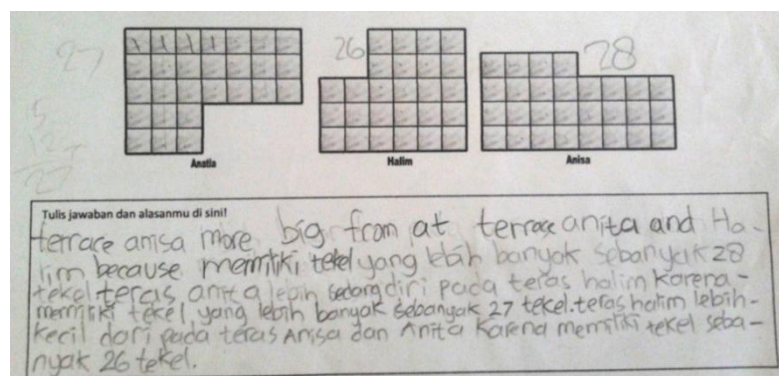 27
26
28
15
12 +
27
Anatia
Halim
Anisa
Tulis jawaban dan alasanmu di sini!
terrace anisa more big from at terrace anita and Ha-
lim because memiliki tekel yang lebih banyak sebanyak 28
tekel teras anita lebih sedang diri pada teras halim karena-
memiliki tekel yang lebih banyak sebanyak 27 tekel.teras halim lebih-
kecil dari pada teras Anisa dan Anita karena memiliki tekel seba-
nyak 26 tekel.